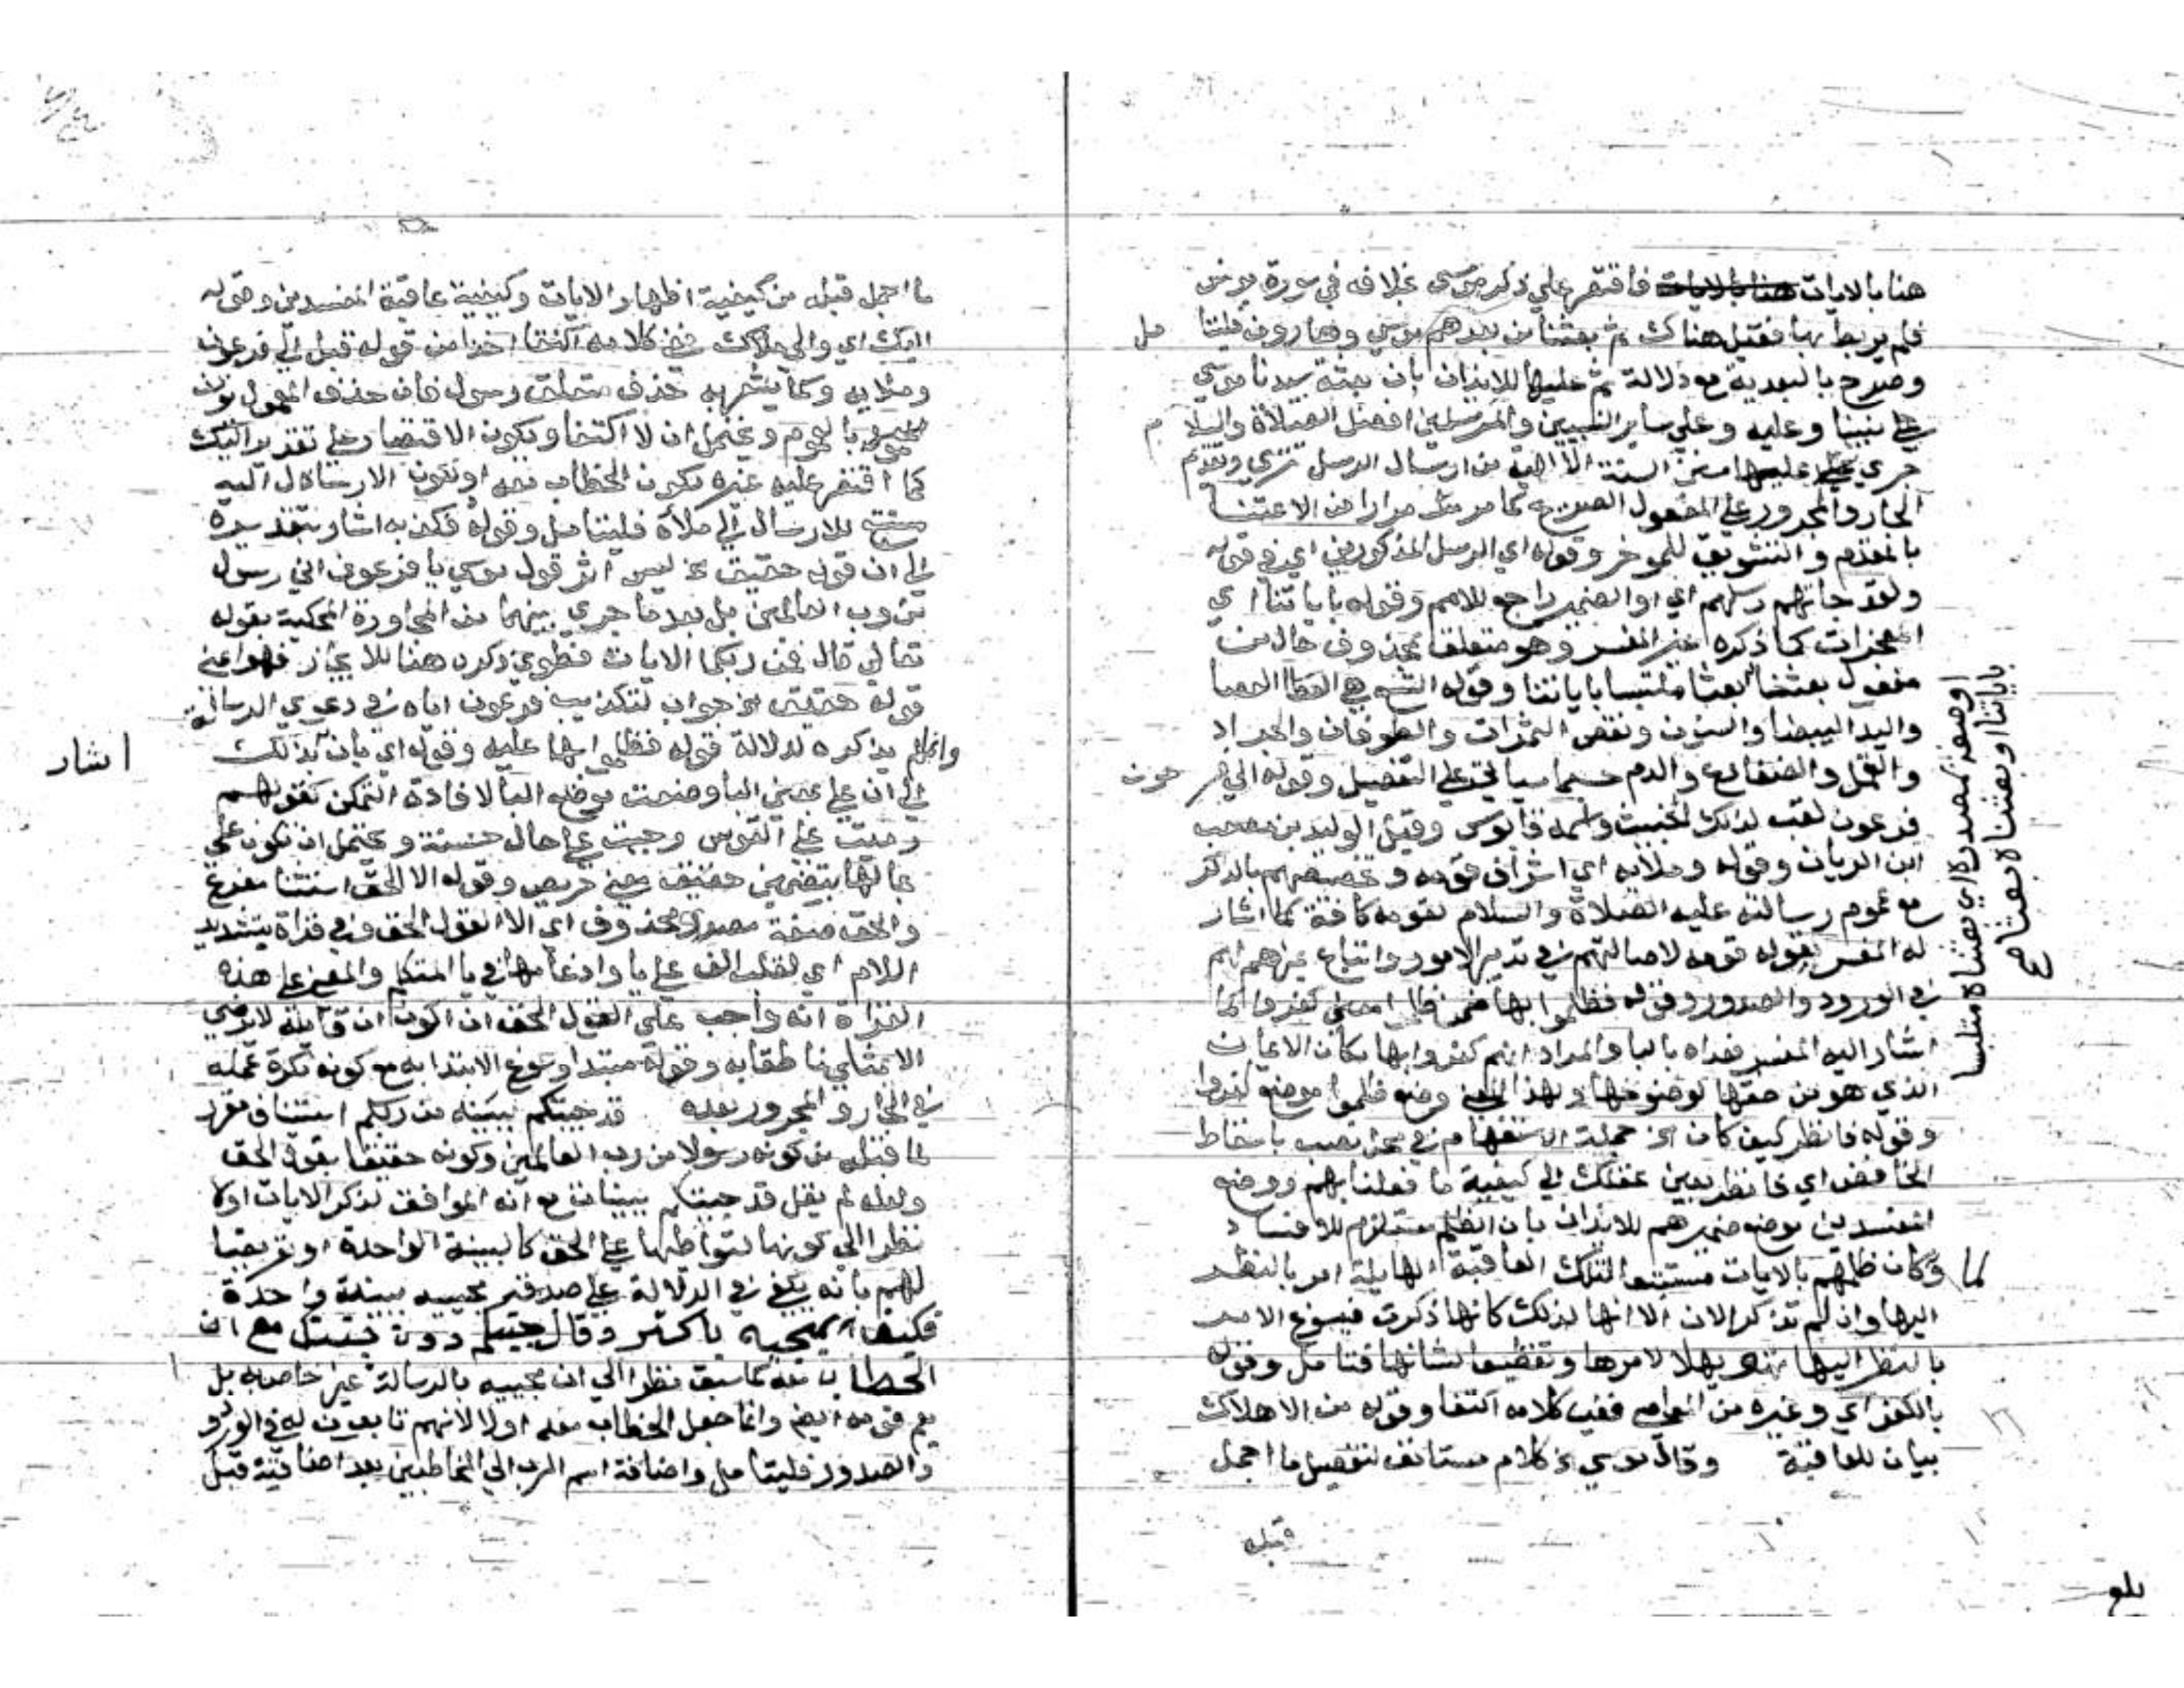 هنا بالايات فاقتصر علي ذكر موسى بخلافه في سورة يونس
فلم يربط بها فقيل هناك ثم بعثنا من بعدهم موسي وهارون فليتا مل
وصرح بالبعدية مع دلالة ثم عليها للايذان بان بعثة سيدنا موسي
علي نبينا وعليه وعلي ساير النبيين والمرسلين افضل الصلاة والسلا م
جري عليها سنن السنة الالهية من ارسال الرسل تتري وتقديم
الجار والمجرور علي المفعول الصريح كما مر مثله مرارا من الاعتنا
بالمقدم والتشويق للموخر وقوله اي الرسل المذكورين اي في قوله
ولقد جاتهم رسلهم اي او الضمير راجع للامم وقوله باياتنا اي
المعجزات كما ذكره المفسر وهو متعلق بمحذوف حال من
مفعول بعثنا بعثا ملتبسا باياتنا وقوله التسع هي العصا
واليد البيضا والسنون ونقص الثمرات والطوفان والجراد
والقمل والضفادع والدم حسبما سياتي علي التفصيل وقوله الي فر عون
فرعون لقب لذلك الخبيث واسمه قابوس وقيل الوليد بن مصعب
ابن الريان وقوله وملايه اي اشراف قومه وتخصيصهم بالذكر
مع عموم رسالته عليه الصلاة والسلام لقومه كافة كما اشار
له المفسر بقوله قومه لاصالتهم في تدبير الامور واتباع غيرهم لهم
في الورود والصدور وقوله فظلموا بها ضمن ظلموا معني كفروا كما
اشار اليه المفسر فعداه بالبا والمراد انهم كفروا بها مكان الايمان
الذي هو من حقها لوضوحها ولهذا المعني وضع ظلموا موضع كفروا
وقوله فانظر كيف كان الخ جملة الاستفهام في محل نصب باسقاط
الخافض اي فانظر بعين عقلك الي كيفية ما فعلنا بهم ووضع
المفسدين موضع ضميرهم للايذان بان الظلم مستلزم للافساد
لما وكان ظلمهم بالايات مستتبعا لتلك العاقبة الهايلة امر بالنظر
اليها وان لم تذكر الان الا انها لذلك كانها ذكرت فيسوغ الامر
بالنظر اليها تهويلا لامرها وتفظيعا لشانها فتامل وقوله
بالكفر اي وغيره من المعاصي ففي كلامه اكتفا وقوله من الاهلاك
بيان للعاقبة وقال موسي الخ كلام مستانف لتفصيل ما اجمل
قبله
او صفة لمصدره اي بعثناه متلبسا
باياتنا او بعثناه بعثا صح
بلغ
ما اجمل قبله من كيفية اظهار الايات وكيفية عاقبة المفسدين وقوله
اليك اي والي ملاك ففي كلامه اكتفا اخذا من قوله قبل الي فرعون
وملايه وكما يشعر به حذف متعلق رسول فان حذف المعمول يوذن
بالعموم ويحتمل ان لا اكتفا ويكون الاقتصار علي تقدير اليك
كما اقتصر عليه غيره لكون الخطاب معه او لكون الارسال اليه
مستتبع للارسال الي ملاه فليتامل وقوله فكذبه اشار بتقديره
الي ان قوله حقيق الخ ليس اثر قول موسي يا فرعون اني رسول
من رب العالمين بل بعد ما جري بينهما من المحاورة المحكية بقوله
تعالي قال فمن ربكما الايات فطوي ذكره هنا للايجاز فهو اعني
قوله حقيق الخ جواب لتكذيب فرعون اياه في دعوي الرسالة
وانما لم يذكره لدلالة قوله فظلموا بها عليه وقوله اي بان بذلك اشار
الي ان علي بمعني البا وضعت موضع البا لافادة التمكن كقولهم
رميت علي القوس وجيت علي حال حسنة ويحتمل ان تكون علي
بابها بتضمين حقيق معني حريص وقوله الا الحق استثنا مفرغ
والحق صفة مصدر محذوف اي الا القول الحق وفي قراة بتشديد
اللام اي بقلب الف علي يا وادغامها في يا المتكلم والمعني علي هذه
القراة انه واجب علي القول الحق ان اكون انا قايله لا يرضي
الا بمثلي ناطقا به وقوله مبتدا وسوغ الابتدا به مع كونه نكرة عمله
في الجار والمجرور بعده قد جيتكم ببينة من ربكم استيناف مقرر
لما قبله من كونه رسولا من رب العالمين وكونه حقيقا بقول الحق
ولعله لم يقل قد جيتكم ببينات مع انه الموافق لذكر الايات اولا
نظرا الي كونها لتواطيها علي الحق كالبينة الواحدة او تعريضا
لهم بانه يكفي في الدلالة علي صدقه مجييه ببينة واحدة
فكيف بمجيه باكثر وقال جيتكم دون جيتك مع ان
الخطاب معه كما سبق نظرا الي ان مجييه بالرسالة غير خاص به بل
يعم قومه ايضا وانما جعل الخطاب معه اولا لانهم تابعون له في الورود
والصدور فليتامل واضافة اسم الرب الي المخاطبين بعد اضافته قبل